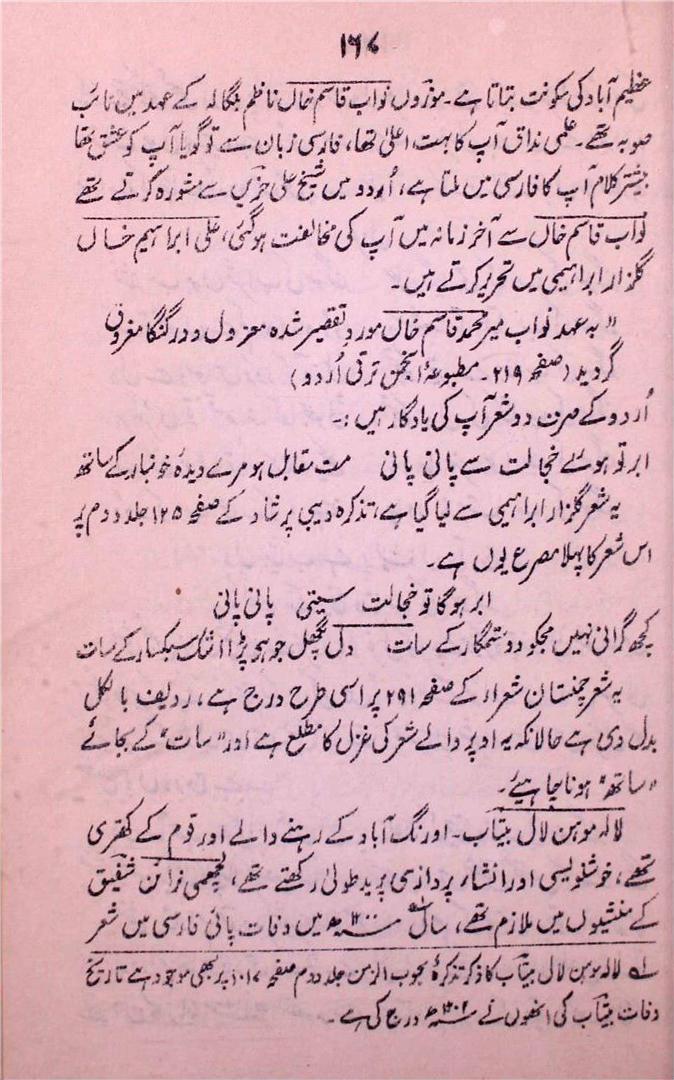 ۱۶۷
عظیم آباد کی سکونت بتاتا ہے۔ موزوں نواب قاسم خاں ناظم بنگالہ کے عہد میں نائب
صوبہ تھے۔ علمی مذاق آپ کا بہت اعلیٰ تھا، فارسی زبان سے تو گویا آپ کو عشق تھا
بیشتر کلام آپ کا فارسی میں ملتا ہے، اُردو میں شیخ علی حزیں سے مشورہ کرتے تھے
نواب قاسم خاں سے آخر زمانہ میں آپ کی مخالفت ہوگئی، علی ابراہیم خاں
گلزار ابراہیمی میں تحریر کرتے ہیں۔
"بہ عہد نواب میر محمد قاسم خاں مورد تقصیر شدہ معزول و در گنگا مغروق
گردید (صفحہ ۲۱۹۔ مطبوعۂ انجمن ترقی اُردو)
اُردو کے صرف دو شعر آپ کی یادگار ہیں :۔
ابر تو ہوئے خجالت سے پانی پانی مت مقابل ہو مرے دیدۂ خونبار کے ساتھ
یہ شعر گلزار ابراہیمی سے لیا گیا ہے، تذکرہ دیبی پرشاد کے صفحہ ۱۲۵ جلد دوم پر
اس شعر کا پہلا مصرع یوں ہے۔
ابر ہوگا تو خجالت سیتی پانی پانی
کچھ گرانی نہیں مجکو دو ستمگار کے سات دل پگھل جو ہو پڑا اشک سبکسار کے سات
یہ شعر چمنستان شعراء کے صفحہ ۲۹۱ پر اسی طرح درج ہے، ردیف بالکل
بدل دی ہے حالانکہ یہ اوپر والے شعر کی غزل کا مطلع ہے اور "سات" کے بجائے
"ساتھ" ہونا چاہیئے۔
لالہ موہن لال بیتاب۔ اورنگ آباد کے رہنے والے اور قوم کے کھتری
تھے، خوشنویسی اور انشاء پردازی پر ید طولیٰ رکھتے تھے، لچھمی نرائن شفیق
کے منشیوں میں ملازم تھے، سال ۱۲۰۰ھ میں وفات پائی فارسی میں شعر
لے لالہ موہن لال بیتاب کا ذکر تذکرۂ محبوب الزمن جلد دوم صفحہ ۱۰۱۷ پر بھی موجود ہے تاریخ
وفات بیتاب کی انھوں نے ۱۲۰۲ھ درج کی ہے۔